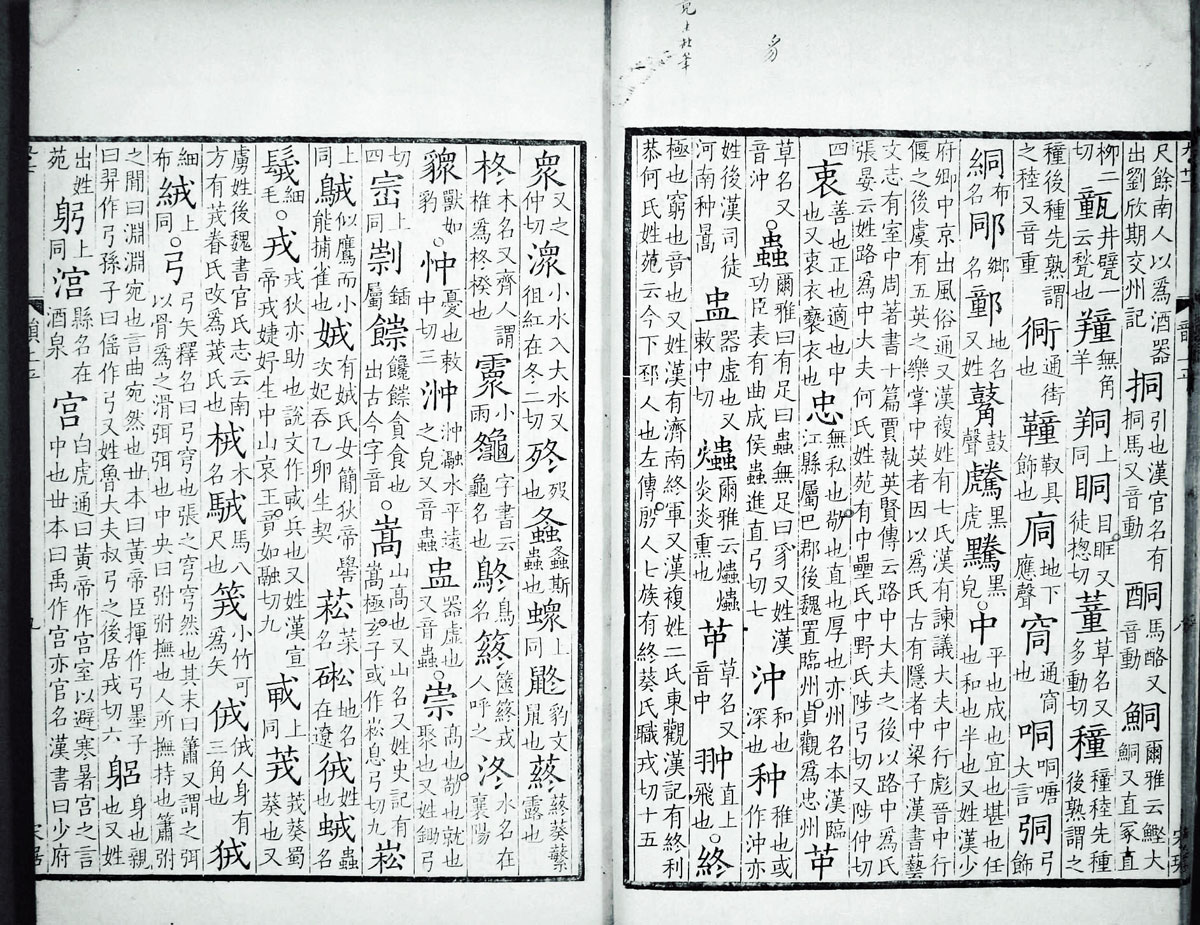 尺餘南人以爲酒器出劉欣期交州記挏引也漢官名有挏馬又音動酮馬酪又音動鮦爾雅云鰹大鮦又直冢直
柳二切㼿井甓一云甃也𦏆無角羊𦍻上同眮目眶又徒揔切蕫草名又多動切穜穜稑先種後熟謂之
種後種先熟謂之稑又音重衕通街也䩞具飾也㢥地下應聲𥦁通窗也哃哃嗵大言弓飾
絧布名𨚯鄉名鄣地名又姓鼕鼓聲䖘黑虎黑皃○中平也成也宜也堪也任也和也半也又姓漢少
府卿中京出風俗通又漢複姓有七氏漢有諫議大夫中行彪晉中行偃之後虞有五英之樂掌中英者因以爲氏古有隱者中梁子漢書藝
文志有室中周著書十篇賈執英賢傳云路中大夫之後以路中爲氏張晏云姓路爲中大夫何氏姓苑有中壘氏中野氏陟弓切又陟仲切
四衷善也正也適也中也又衷衣褻衣也忠無私也敬也直也厚也亦州名本漢臨江縣屬巴郡後魏置臨州貞觀爲忠州𦬕
草名又音沖○蟲爾雅曰有足曰蟲無足曰豸又姓漢功臣表有曲成侯蟲進直弓切七沖和也深也种稚也或作沖亦
姓後漢司徒河南种暠盅器虛也又敕中切爞爾雅云爞爞炎炎熏也𦬕草名又音中翀直上飛也○終
極也窮也竟也又姓漢有濟南終軍又漢複姓二氏東觀漢記有終利恭何氏姓苑云今下邳人也左傳殷人七族有終葵氏職戎切十五
眾又之仲切潨小水入大水又徂紅在冬二切歿也螽螽斯蟲也蠑上同鼨豹文鼠也蔠蔠葵蘩露也
柊木名又齊人謂椎爲柊楑也霥小雨䶱字書云龜名也鴤鳥名䈺䈺戎人呼之泈水名在襄陽
獸如豹○忡憂也敕中切三浺浺瀜水平遠之皃又音蟲盅器虛也又音蟲○崇高也敬也就也聚也又姓鋤弓
切四㓽上同剬鍤屬饞饞貪食也出古今字音○嵩山高也又山名又姓史記有嵩極玄子或作崧息弓切九崧
上同䳚似鷹而小能捕雀也娀有娀氏女簡狄帝嚳次妃吞乙卵生契菘菜名硹地名在遼㣝姓䘻蟲名
髶細毛○戎戎狄亦助也說文作𢦦兵也又姓漢宣帝戎婕妤生中山哀王音如融切九𢦦上同茙茙葵蜀葵也又
虜姓後魏書官氏志云南方有茙眷氏改爲茙氏也㭜木名駥馬八尺也𥬪小竹可爲矢㑾㑾人身有三角也狨
細布絨上同○弓弓矢釋名曰弓穹也張之穹穹然也其末曰簫又謂之弭以骨爲之滑弭弭也中央曰弣弣撫也人所撫持也簫弣
之閒曰淵淵宛也言曲宛然也世本曰黃帝臣揮作弓墨子曰羿作弓孫子曰倕作弓又姓魯大夫叔弓之後居戎切六躳身也親也又姓
出姓苑躬上同涫縣名在酒泉宮白虎通曰黃帝作宮室以避寒暑宮之言中也世本曰禹作宮亦官名漢書曰少府